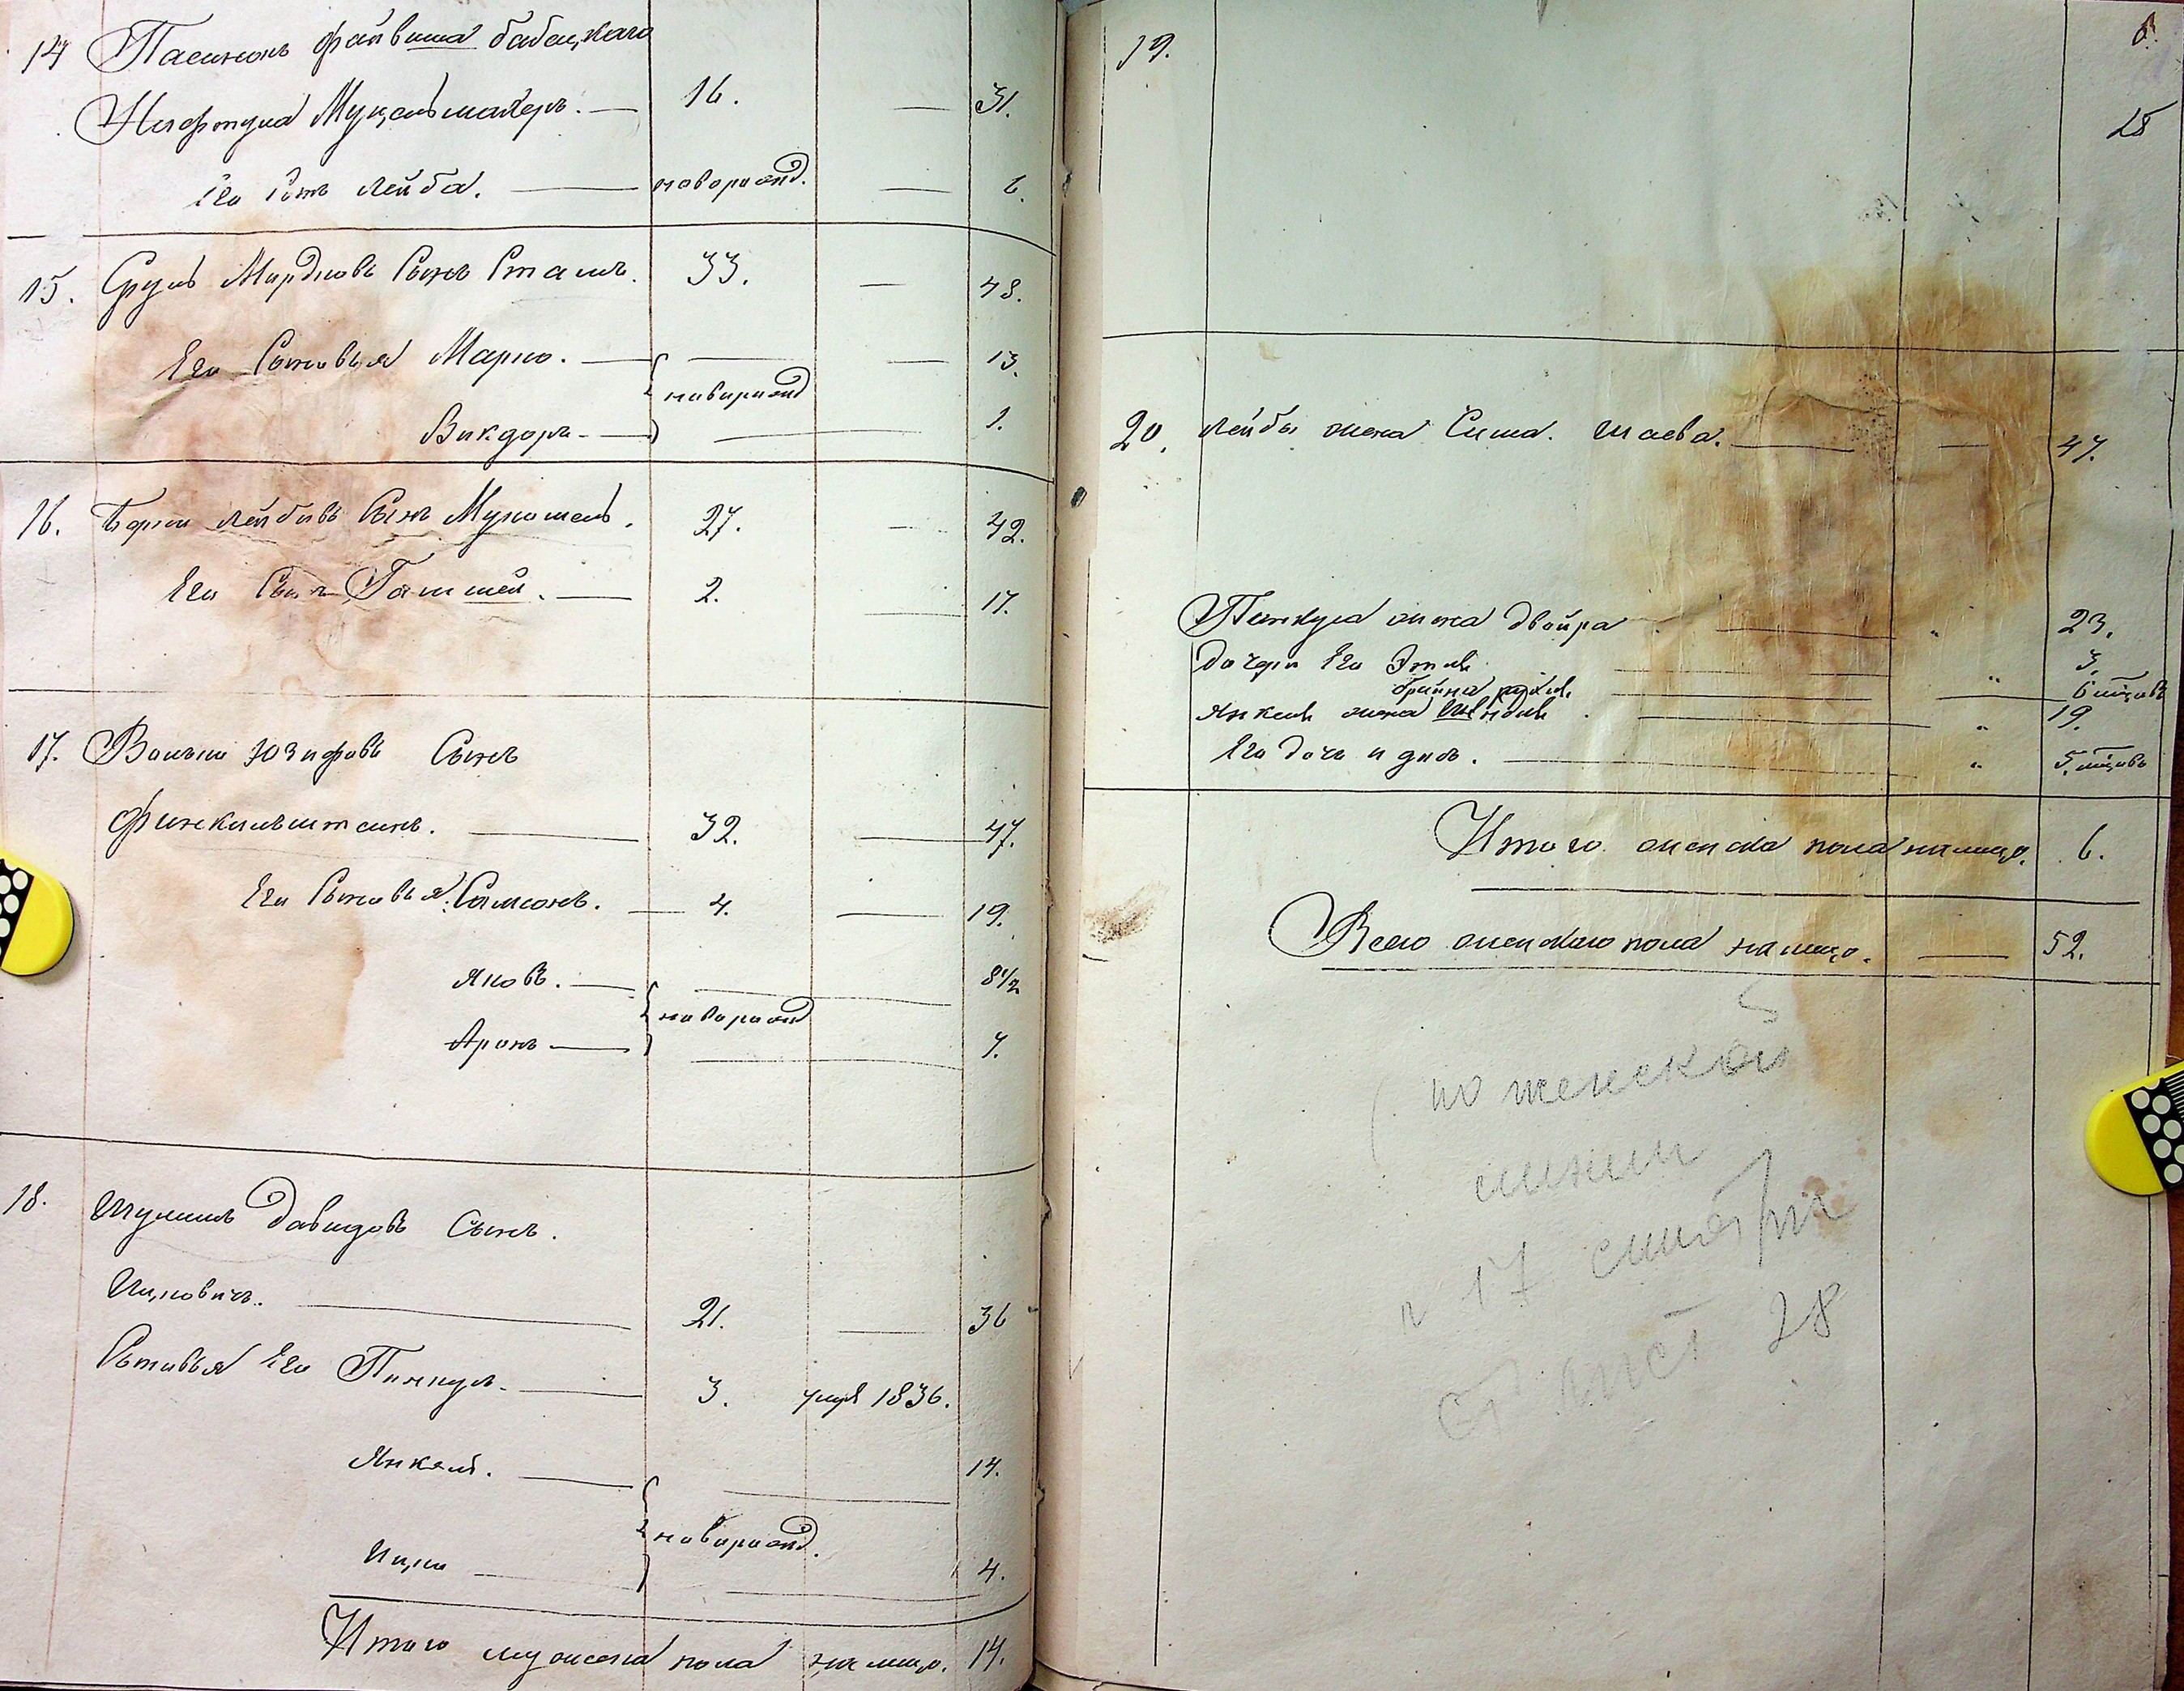 14 Пасинокъ Файвиша Бабацкаго
Нафтула Муцельмахеръ. — 16. — 31.
Его Сынъ Лейба. — новорожд. — 6.
15. Сруль Мардковъ Сынъ Сталь. 33. — 48.
Его Сыновья Марко. — — — 13.
новорожд
Викдоръ — — 1.
16. Берко Лейбовъ Сынъ . 27. — 42.
Его Сынъ Гатшель. — 2. — 17.
17. Вольки Юзифовъ Сынъ
Финкильштейнъ. — 32. — 47.
Его Сыновья: Самсонъ. — 4. — 19.
Яковъ. — — 8 1/2
новорожд
Аронъ — — 7.
18. Шулимъ Давидовъ Сынъ.
Ицковичъ. — 21. — 36
Сыновья Его Пинкусъ. — 3. умре 1836.
Янкель. — — 14.
новорожд.
Ицко — — 4.
Итого мужеска пола на лицо. 14.
6.
19.
25
20. Лейбы жена Сима. Шаева. — — 47.
Пинкуса жена Двойра — " 23.
Дочери Его Этля — " 3.
Брайна Рухля — — 6 мцовъ
Янкеля жена Шейндля . — " 19.
Его дочь . — " 5. мцовъ
Итого женска пола на лицо. 6.
Всего женскаго пола на лицо. — 52.
по женской
линии
и 17
ст лист 28